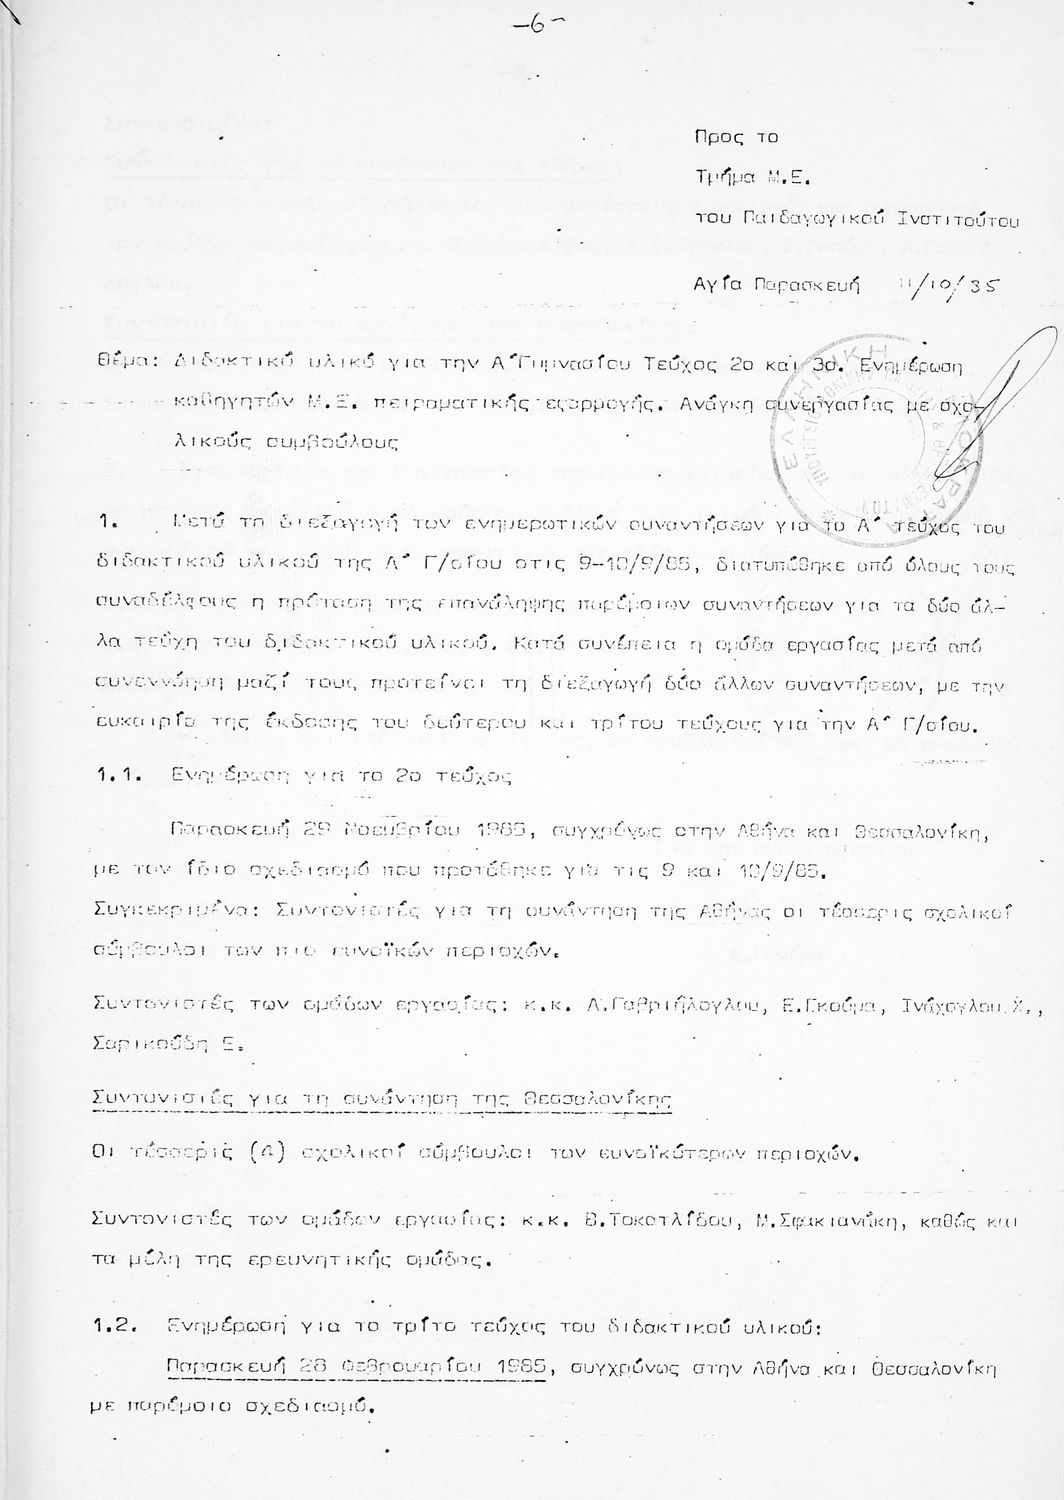 -6-
Προς το
Τμήμα Μ.Ε.
του Παιδαγωγικού Ινστιτούτου
Αγία Παρασκευή 11/10/85
Θέμα: Διδακτικό υλικό για την Α΄Γυμνασίου Τεύχος 2ο και 3ο. Ενημέρωση
καθηγητών Μ.Ε. πειραματικής εφαρμογής. Ανάγκη συνεργασίας με σχο-
λικούς συμβούλους
1. Μετά τη διεξαγωγή των ενημερωτικών συναντήσεων για το Α΄ τεύχος του
διδακτικού υλικού της Α΄ Γ/σίου στις 9-10/9/85, διατυπώθηκε από όλους τους
συναδέλφους η πρόταση της επανάληψης παρόμοιων συναντήσεων για τα δύο άλ-
λα τεύχη του διδακτικού υλικού. Κατά συνέπεια η ομάδα εργασίας μετά από
συνεννόηση μαζί τους προτείνει τη διεξαγωγή δύο άλλων συναντήσεων, με την
ευκαιρία της έκδοσης του δεύτερου και τρίτου τεύχους για την Α΄ Γ/σίου.
1.1. Ενημέρωση για το 2ο τεύχος
Παρασκευή 29 Νοεμβρίου 1985, συγχρόνως στην Αθήνα και Θεσσαλονίκη,
με τον ίδιο σχεδιασμό που προτάθηκε για τις 9 και 10/9/85.
Συγκεκριμένα: Συντονιστές για τη συνάντηση της Αθήνας οι τέσσερις σχολικοί
σύμβουλοι των πιο ευνοϊκών περιοχών.
Συντονιστές των ομάδων εργασίας: κ.κ. Α.Γαβριήλογλου, Ε.Γκούμα, Ινάχογλου Χ.,
Σαρικούδη Ε.
Συντονιστές για τη συνάντηση της Θεσσαλονίκης
Οι τέσσερις (4) σχολικοί σύμβουλοι των ευνοϊκότερων περιοχών.
Συντονιστές των ομάδων εργασίας: κ.κ. Β.Τοκατλίδου, Μ.Σφακιανάκη, καθώς και
τα μέλη της ερευνητικής ομάδας.
1.2. Ενημέρωση για το τρίτο τεύχος του διδακτικού υλικού:
Παρασκευή 28 Φεβρουαρίου 1985, συγχρόνως στην Αθήνα και Θεσσαλονίκη
με παρόμοιο σχεδιασμό.
ΕΛΛΗΝΙΚΗ ΔΗΜΟΚΡΑΤΙΑ